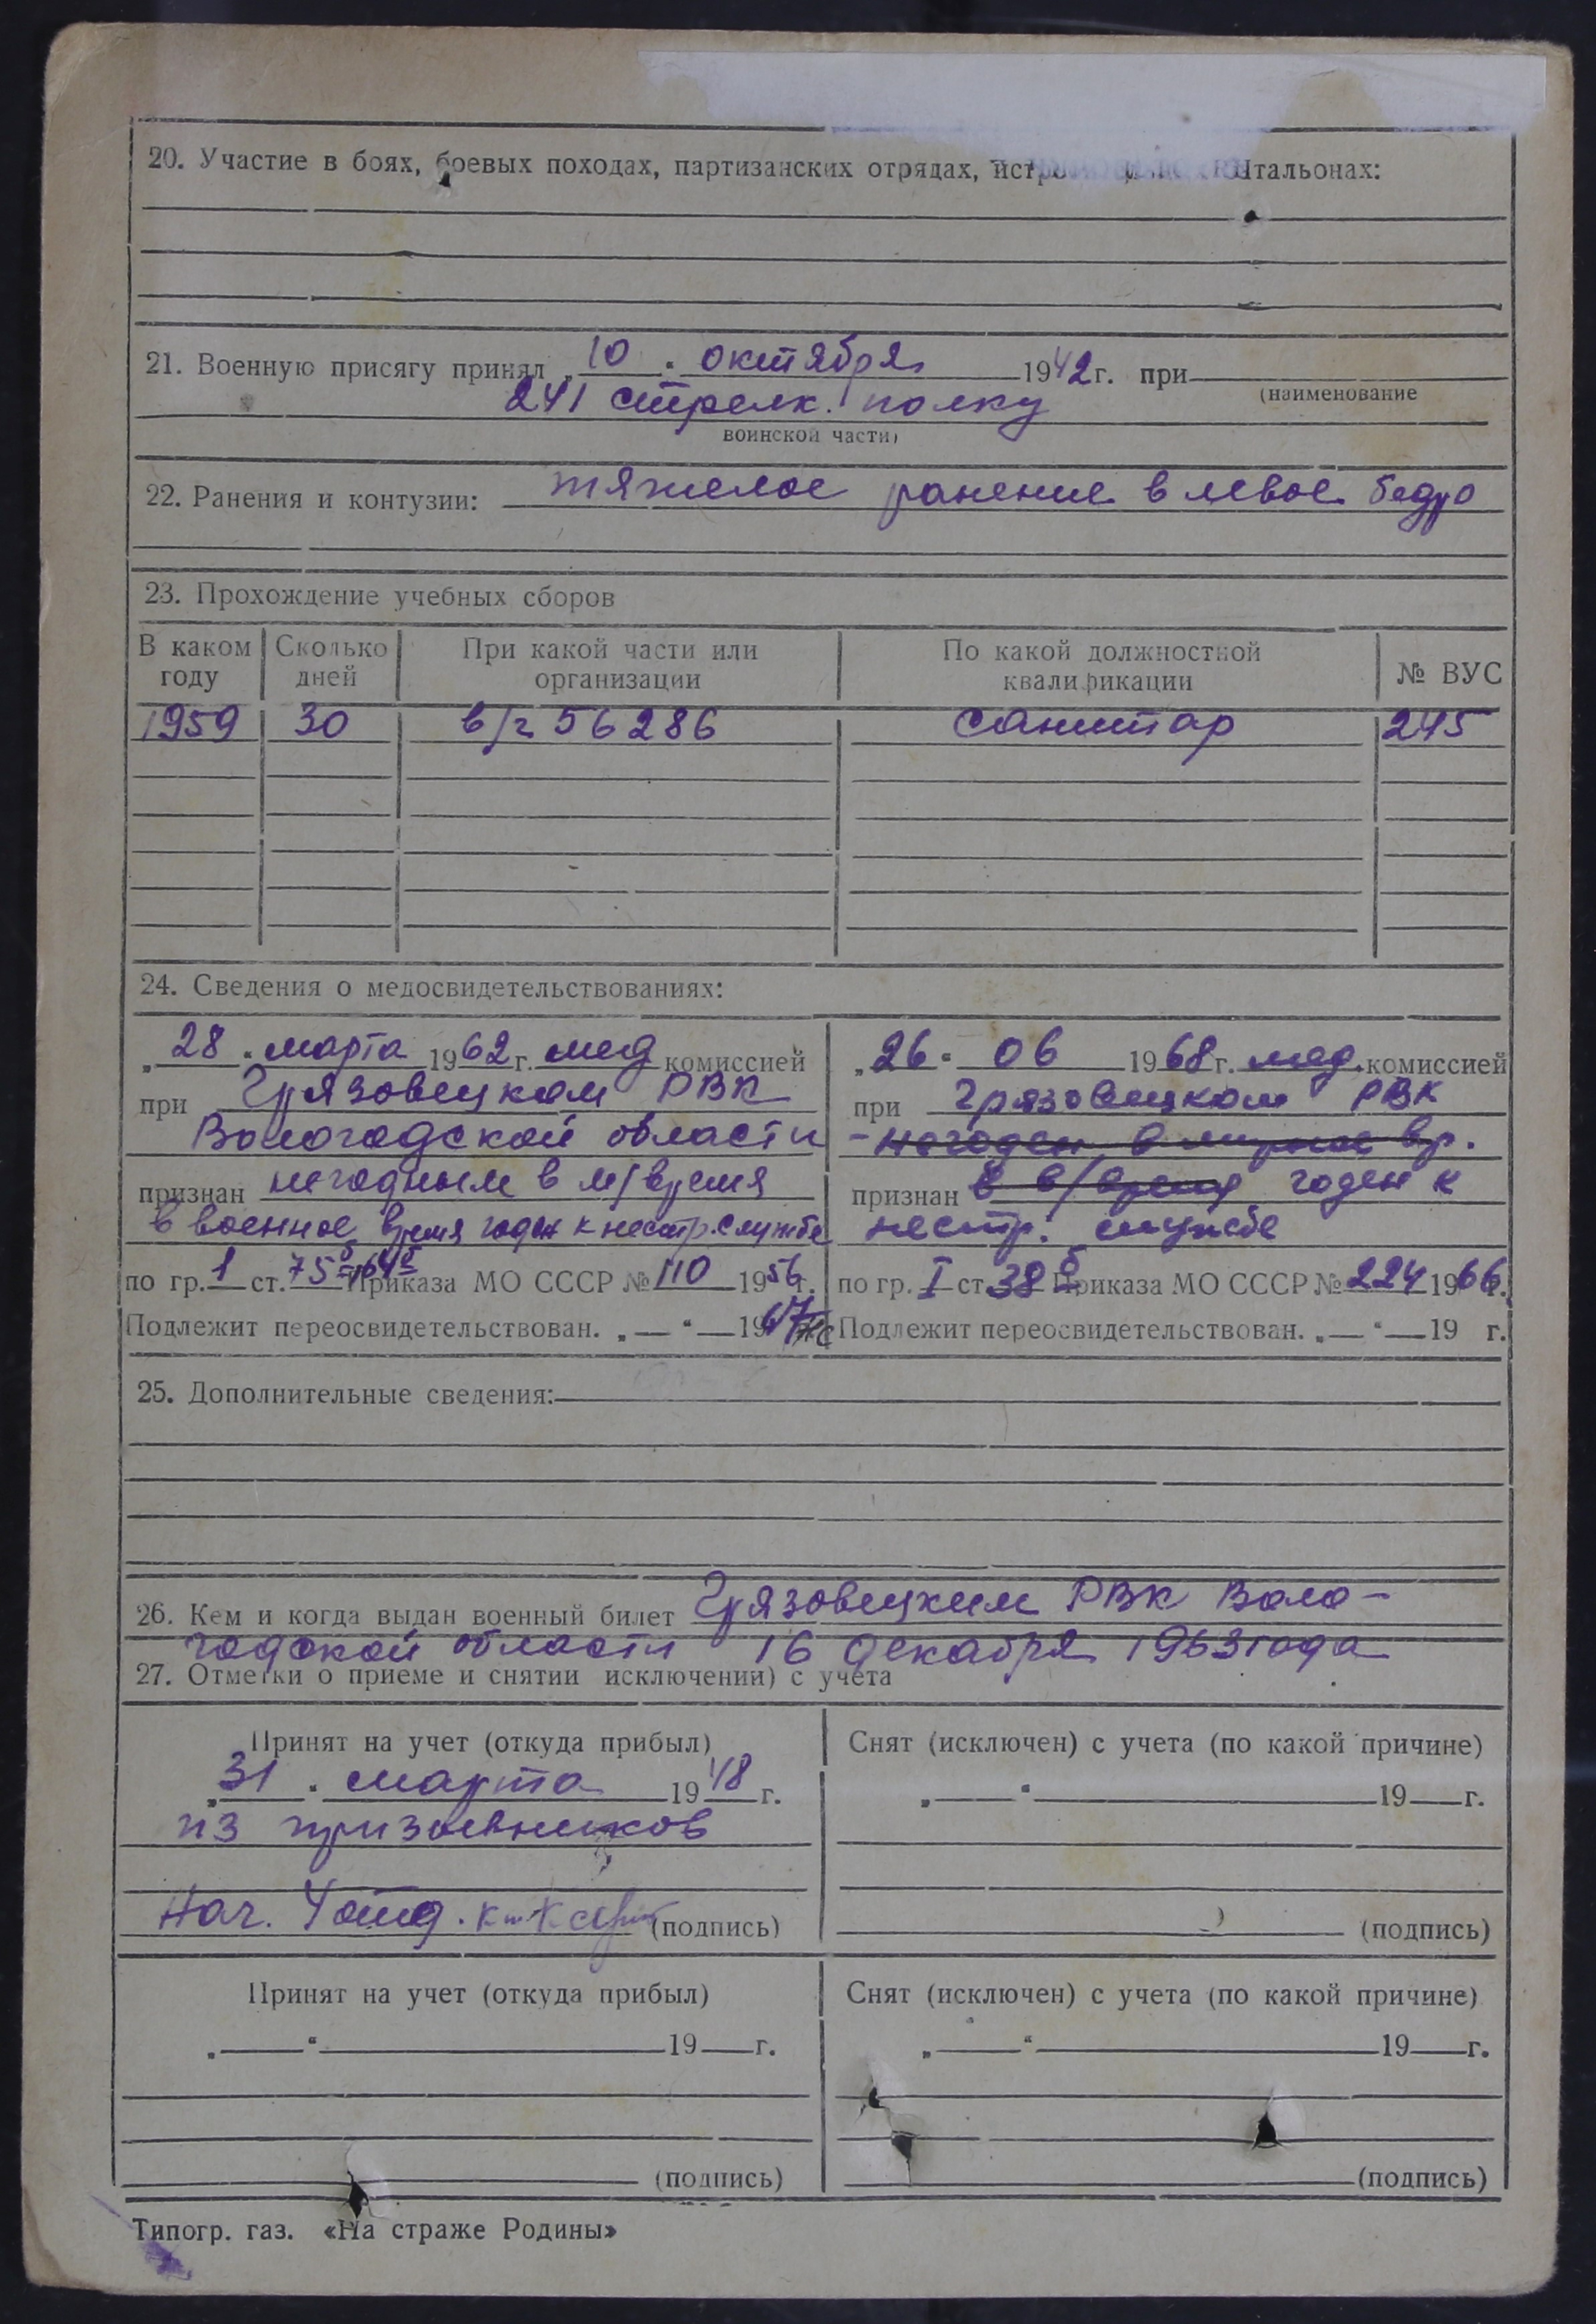 20. Участие в боях, боевых походах, партизанских отрядах, истр тальонах:
21. Военную присягу принял „10“ октября 1942 г. при
(наименование
241 стрелк. полку
воинской части)
22. Ранения и контузии: тяжелое ранение в левое бедро
23. Прохождение учебных сборов
В каком году Сколько дней При какой части или организации По какой должностной квалификации № ВУС
1959 30 в/ч 56286 санитар 245
24. Сведения о медосвидетельствованиях:
„28“ марта 1962 г. мед комиссией
при Грязовецком РВК
Вологодской области
признан негодным в м/время
в военное время годен к нестр. службе
по гр. 1 ст. 75 Приказа МО СССР № 110 1956 г.
Подлежит переосвидетельствован. „—“ — 1967
„26“ 06 1968 г. мед. комиссией
при Грязовецком РВК
- негоден в мирное вр.
признан в в/время годен к
нестр. службе
по гр. I ст. 38б Приказа МО СССР № 224 1966 г.
Подлежит переосвидетельствован. „—“ — 19 г.
25. Дополнительные сведения:
26. Кем и когда выдан военный билет Грязовецким РВК Воло-
годской области 16 декабря 1963 года
27. Отметки о приеме и снятии исключении) с учета
Принят на учет (откуда прибыл)
„31“ марта 1948 г.
из призывников
Нач. 4 отд. к-н (подпись)
Снят (исключен) с учета (по какой причине)
„ “ 19 г.
(подпись)
Принят на учет (откуда прибыл)
„ “ 19 г.
(подпись)
Снят (исключен) с учета (по какой причине)
„ “ 19 г.
(подпись)
Типогр. газ. «На страже Родины»